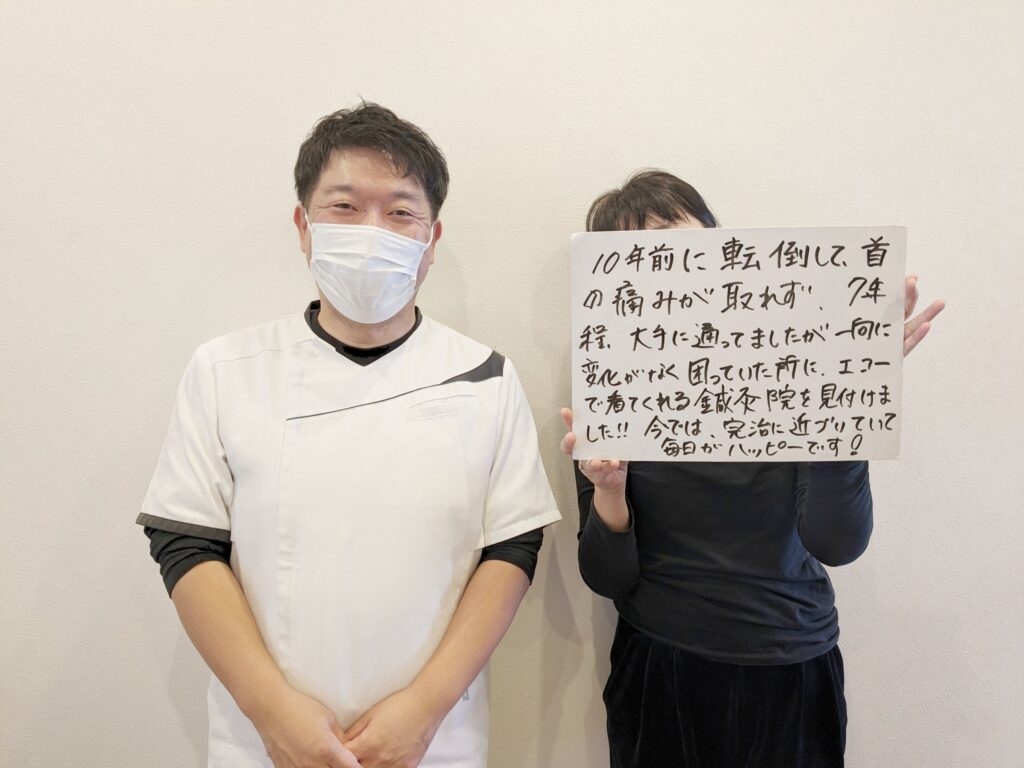 10年前に転倒して、首
の痛みが取れず、7年
程、大手に通ってましたが一向に
変化がなく困っていた所に、エコー
で看てくれる鍼灸院を見付けま
した!! 今では、完治に近づいていて
毎日がハッピーです!